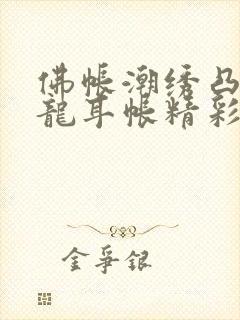 佛帳潮绣凸
龍耳帳精彩
金爭銀